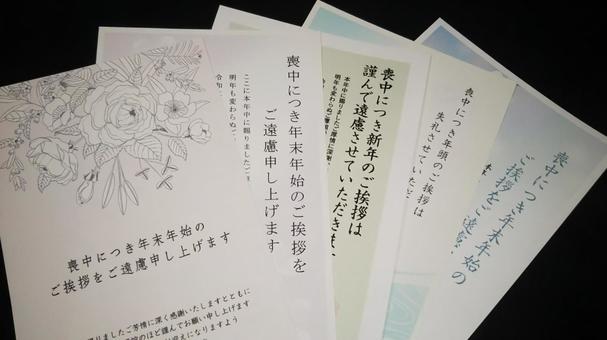 喪中につき年末年始の
ご挨拶をご遠慮申し上げます
ましたご芳情に深く感謝いたしますとともに
のほど謹んでお願い申し上げます
迎えになりますよう
喪中につき年末年始のご挨拶を
ご遠慮申し上げます
ここに本年中に賜りましたご
明年も変わらぬご
令和
喪中につき新年のご挨拶は
謹んで遠慮させていただきます
本年中に賜りましたご芳情に深謝
明年も変わらぬご
喪中につき年頭のご挨拶は
失礼させていただ
喪中につき年末年始の
ご挨拶をご遠慮